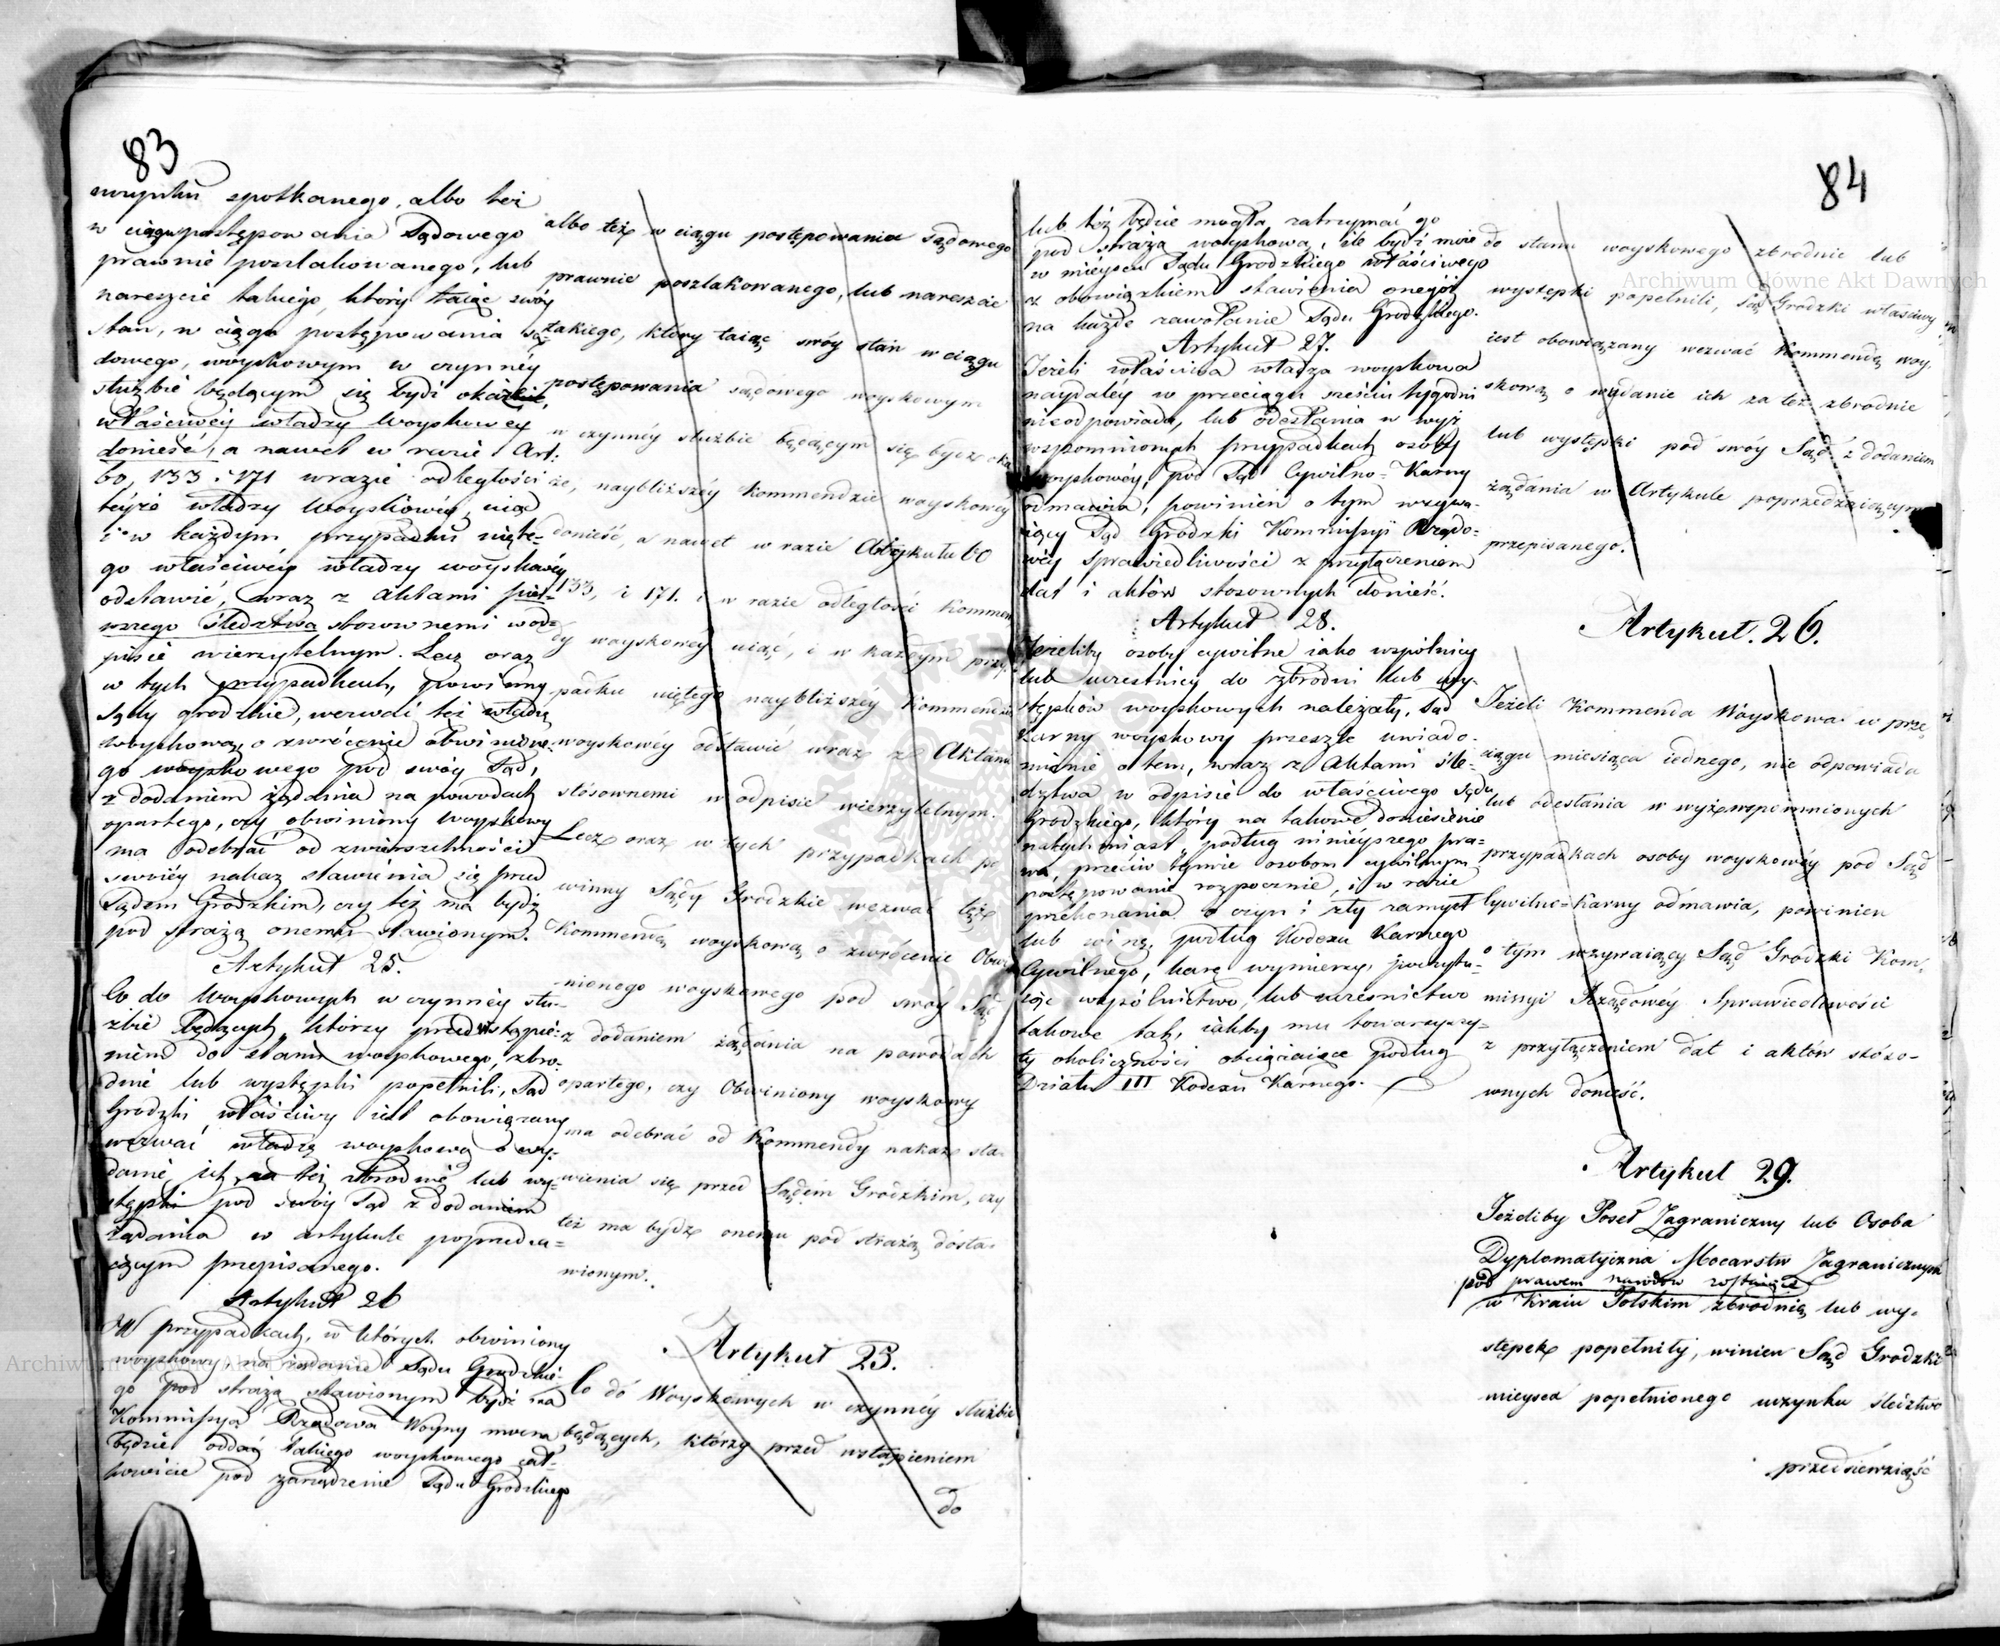 83
uczynku spotkanego, albo też
w ciągu postępowania Sądowego
prawnie poszlakowanego, lub
nareszcie takiego, który taiąc swóy
stan, w ciągu postępowania są-
dowego, woyskowym w czynnéy
służbie będącym się bydź okaże,
właściwéy władzy Woyskowéy
donieść, a nawet w razie Art:
60, 133 i 171 w razie odległości
teyże władzy Woyskowéy, uiąć
i w każdym przypadku uięte-
go właściwéy władzy woyskowéy
odstawić, wraz z Aktami pier-
wszego śledztwa stosownemi w od-
pisie wierzytelnym. Lecz oraz
w tych przypadkach, powinny
Sądy grodzkie, wezwać też władzę
woyskową o zwrócenie obwinione-
go woyskowego pod swóy Sąd,
z dodaniem żądania na powodach
opartego, czy obwiniony woyskowy
ma odebrać od zwierzchności
swoiéy nakaz stawienia się przed
Sądem Grodzkim, czy też ma bydź
pod strażą onemu stawionym.
Artykuł 25.
Co do Woyskowych w czynnéy słu-
żbie będących, którzy przed wstąpie-
niem do stanu woyskowego, zbro-
dnie lub występki popełnili, Sąd
Grodzki właściwy iest obowiązany
wezwać władzę woyskową o wy-
danie ich za też zbrodnie lub wy-
stępki pod swóy Sąd z dodaniem
żądania w artykule poprzedza-
iącym przepisanego.
Artykuł 26
W przypadkach, w których obwiniony
woyskowy na żądanie Sądu Grodzkie-
go pod strażą stawionym bydź ma
Kommissya Rządowa Woyny mocna
będzie oddać takiego woyskowego cał-
kowicie pod zarządzenie Sądu Grodzkiego
albo też w ciągu postępowania sądowego
prawnie poszlakowanego, lub nareszcie
takiego, który taiąc swóy stan w ciągu
postępowania sądowego woyskowym
w czynnéy służbie będącym się bydź oka-
że, naybliższéy Kommendzie woyskowéy
donieść, a nawet w razie Artykułu 60
133, i 171. i w razie odległości Kommen-
dy woyskowéy uiąć, i w każdym przy-
padku uiętego naybliższéy Kommendzie
woyskowéy odstawić wraz z Aktami
stósownemi w odpisie wierzytelnym.
Lecz oraz w tych przypadkach po
winny Sądy Grodzkie wezwać też
Kommendę woyskową o zwrócenie Obwi
nionego woyskowego pod swóy Sąd
z dodaniem żądania na powodach
opartego, czy Obwiniony woyskowy
ma odebrać od Kommendy nakaz sta-
wienia się przed Sądem Grodzkim, czy
też ma bydź onemu pod strażą dosta-
wionym.
Artykuł 25.
Co do Woyskowych w czynnéy służbie
będących, którzy przed wstąpieniem
do
84
lub téż będzie mogła zatrzymać go
pod strażą woyskową, ile bydź może
w mieyscu Sądu Grodzkiego właściwego
z obowiązkiem stawienia onegóż
na każde zawołanie Sądu Grodzkiego.
Artykuł 27.
Jeżeli właściwa władza woyskowa
naydaléy w przeciągu sześciu tygodni
nieodpowiada, lub odesłania w wyż
wspomnionych przypadkach osoby
woyskowéy, pod Sąd Cywilno-Karny
odmawia, powinien o tym wzywa-
iący Sąd Grodzki Kommissyi Rządo-
wéy Sprawiedliwości z przyłączeniem
dat i aktów stosownych donieść.
Artykuł 28.
Jeżeliby osoby cywilne iako wspólnicy
lub uczestnicy do zbrodni lub wy-
stępków woyskowych należały, Sąd
Karny woyskowy przeszle uwiado-
mienie o tem, wraz z Aktami śle-
dztwa w odpisie do właściwego Sądu
Grodzkiego, który na takowe doniesienie
natychmiast podług ninieyszego pra-
wa, przeciw tymże osobom cywilnym
postępowanie rozpocznie, i w razie
przekonania o czyn i zły zamysł
lub winę, podług Kodexu Karnego
Cywilnego, karę wymierzy, poczytu-
iąc wspólnictwo, lub uczesnictwo
takowe tak, iakby mu towarzyszy-
ły okoliczności obciążaiące podług
Działu III Kodexu Karnego.
do stanu woyskowego zbrodnie lub
występki popełnili, Sąd Grodzki właściwy
iest obowiązany wezwać Kommendę woy-
skową o wydanie ich za też zbrodnie
lub występki pod swóy Sąd z dodaniem
żądania w Artykule poprzedzaiącym
przepisanego.
Artykuł. 26.
Jeżeli Kommenda Woyskowa w prze
ciągu miesiąca iednego, nie odpowiada
lub odesłania w wyżwspomnionych
przypadkach osoby woyskowéy pod Sąd
Cywilno-Karny odmawia, powinien
o tym wzywaiący Sąd Grodzki Kom-
missyi Rządowéy Sprawiedliwości
z przyłączeniem dat i aktów stóso-
wnych donieść.
Artykuł 29.
Jeżeliby Poseł Zagraniczny lub Osoba
Dyplomatyczna Mocarstw Zagranicznych
pod prawem narodów zostaiące
w Kraiu Polskim zbrodnią lub wy-
stępek popełniły, winien Sąd Grodzki
mieysca popełnionego uczynku śledztwo
przedsiewziąść